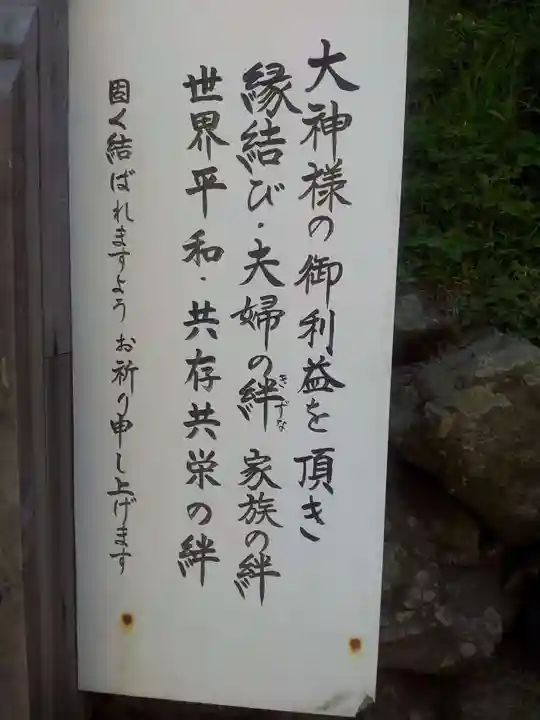 大神様の御利益を頂き
縁結び・夫婦の絆 家族の絆
きずな
世界平和・共存共栄の絆
固く結ばれますよう お祈り申し上げます